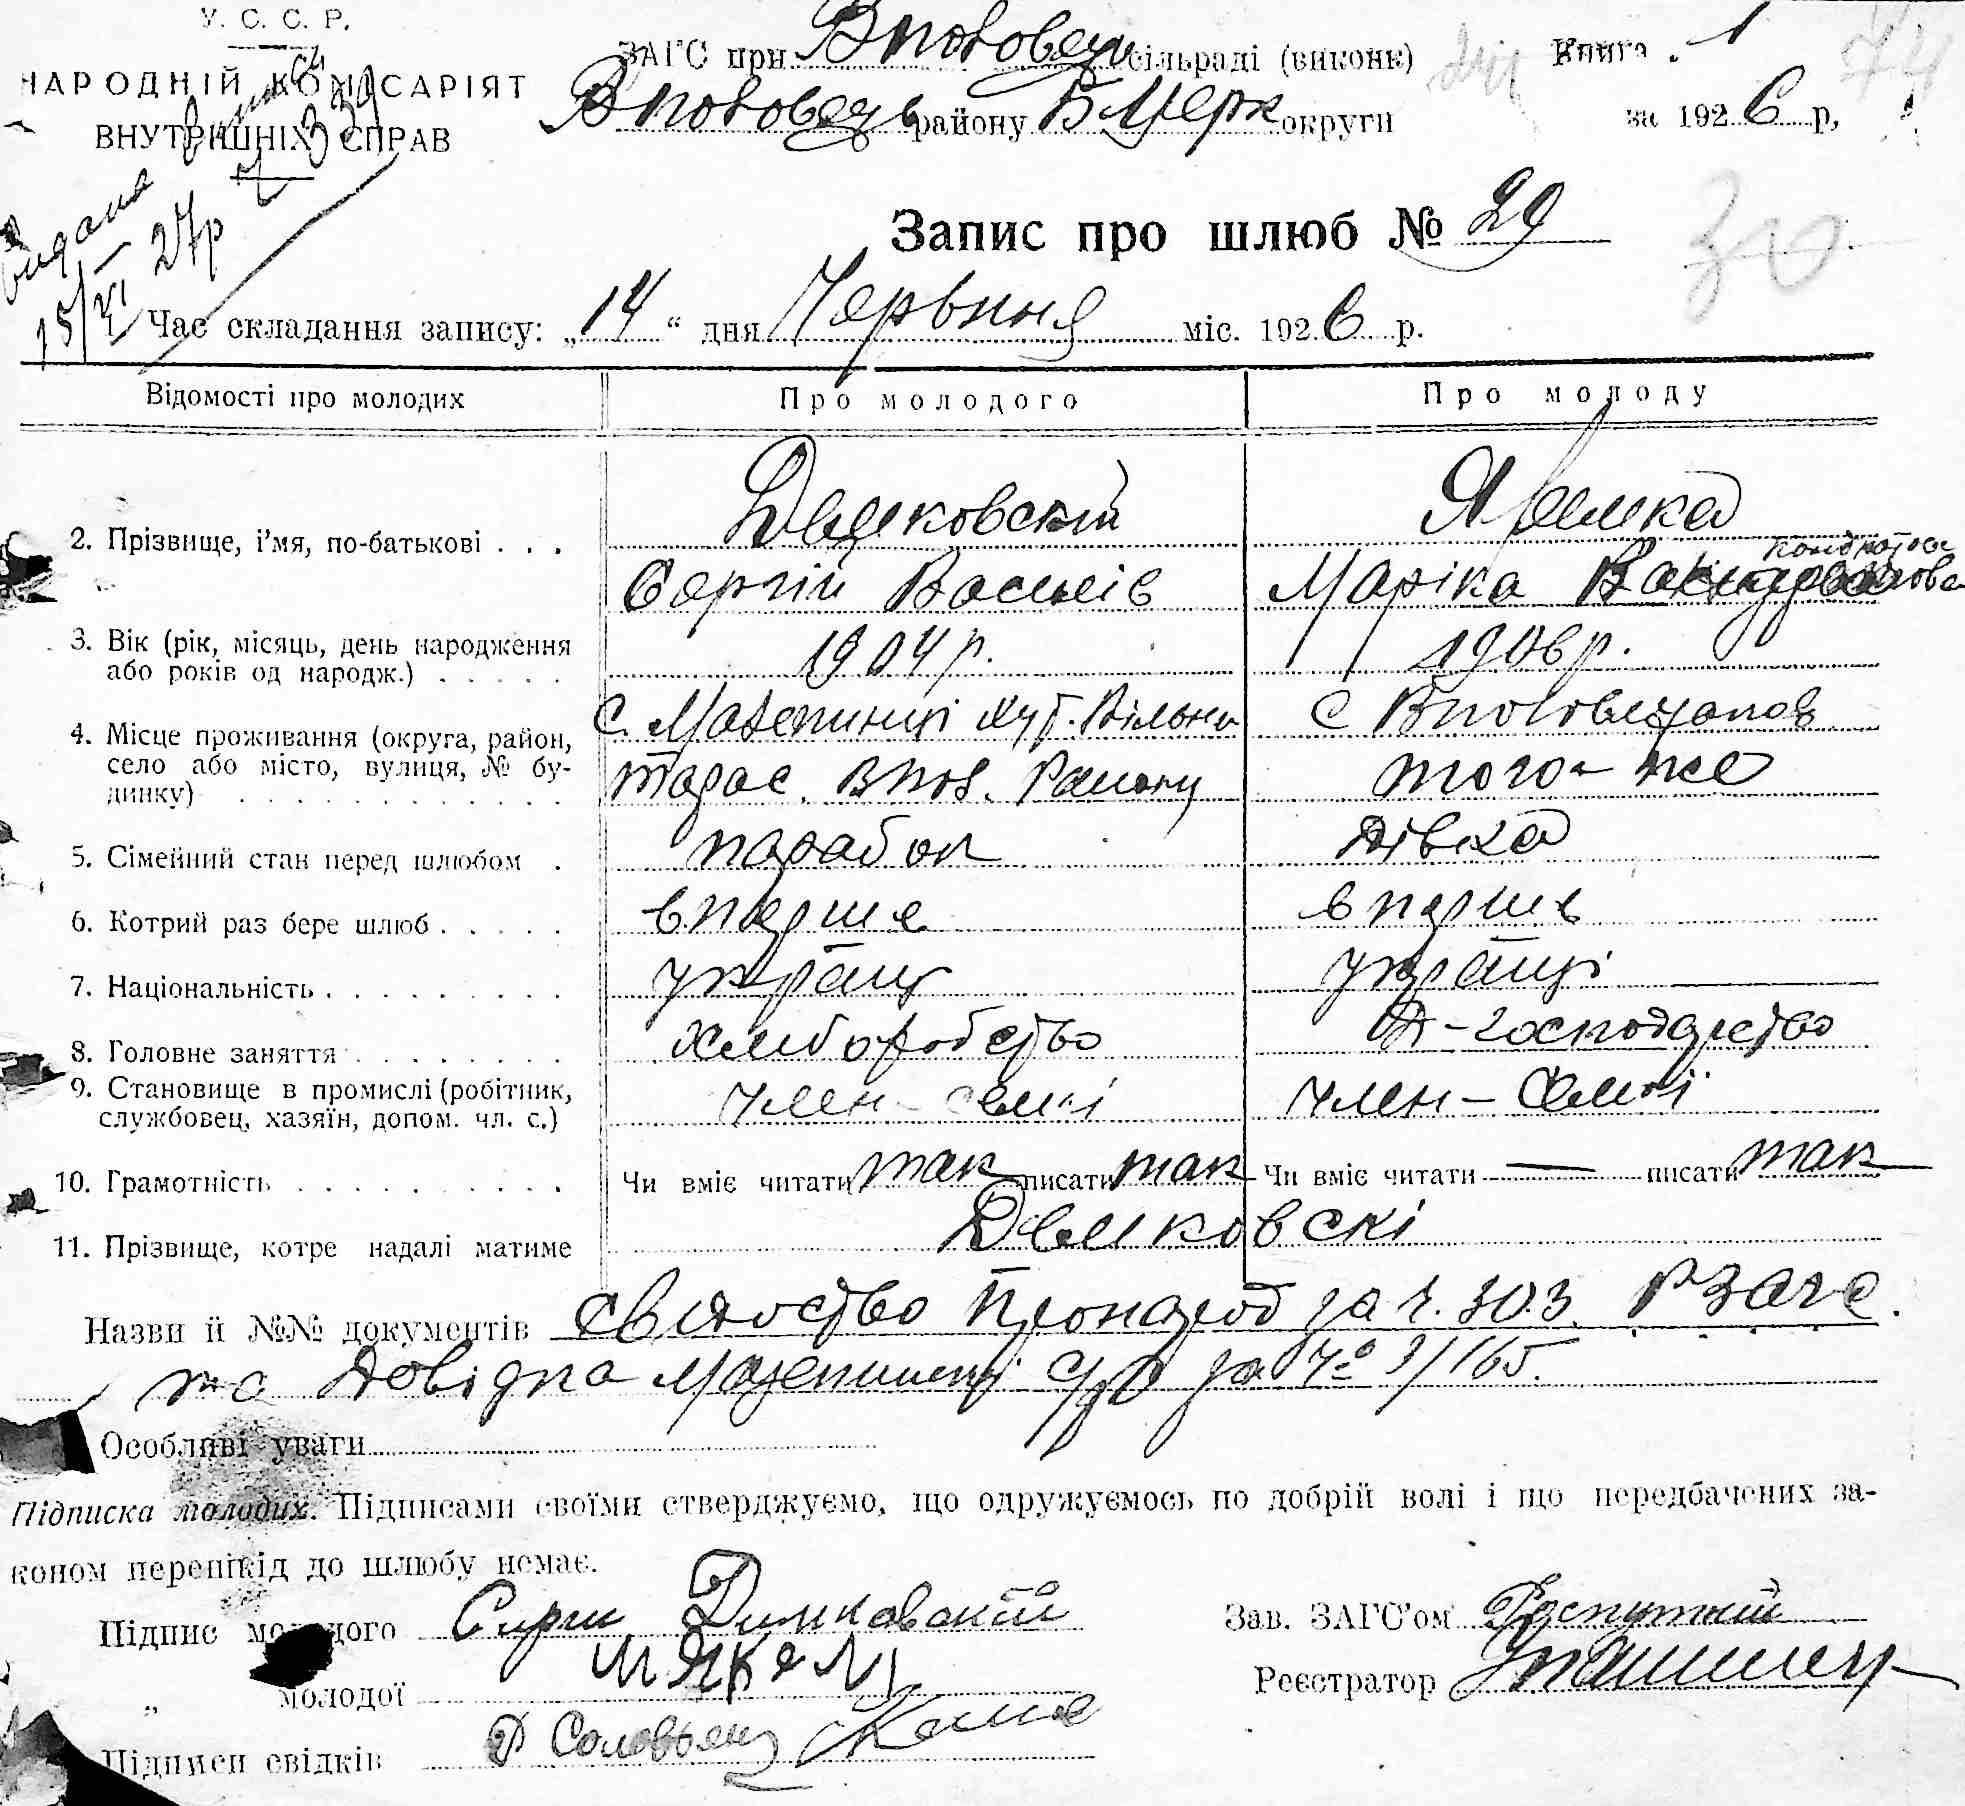 У. С. С. Р.
НАРОДНІЙ КОМІСАРІЯТ
ВНУТРІШНІХ СПРАВ
видана
15/VI 27р
ЗАГС при Вполовець сільраді (виконк)
Вполовець району БЦерк округи
Книга 1
за 1926 р,
74
Запис про шлюб № 29
30
Час складання запису: „14“ дня Червння міс. 1926 р.
Відомості про молодих Про молодого Про молоду
2. Прізвище, і’мя, по-батькові . . . Демковскій Яремка
Сергій Василів Маріка Кондратова
3. Вік (рік, місяць, день народження
або років од народж.) . . . . . 1904 р. 1906 р.
4. Місце проживання (округа, район,
село або місто, вулиця, № бу-
динку) . . . . . . . . . . . .
с. Мазепинці хут. Вільно с
Тарас. Впол. Району того-же
5. Сімейний стан перед шлюбом . парабок дівка
6. Котрий раз бере шлюб . . . . . вперше вперше
7. Національність . . . . . . . . . україц україці
8. Головне заняття . . . . . . . . хліборобство Д-господарство
9. Становище в промислі (робітник,
службовец, хазяїн, допом. чл. с.) член-семї член-семї
10. Грамотність . . . . . . . . . . Чи вміє читати так писати так Чи вміє читати — писати так
11. Прізвище, котре надалі матиме Демковскі
Назви й №№ документів свідоство про народ за ч. 303 РЗАГС.
та Довідка Мазепинці с/р за ч° 9/165.
Особливі уваги
Підписка молодих. Підписами своїми стверджуємо, що одружуємось по добрій волі і що передбачених за-
коном перепікід до шлюбу немає.
Підпис молодого Сирги Димковский
Зав. ЗАГС’ом Распутній
„ молодої
Реєстратор
Підписи свідків Д Соловьянц